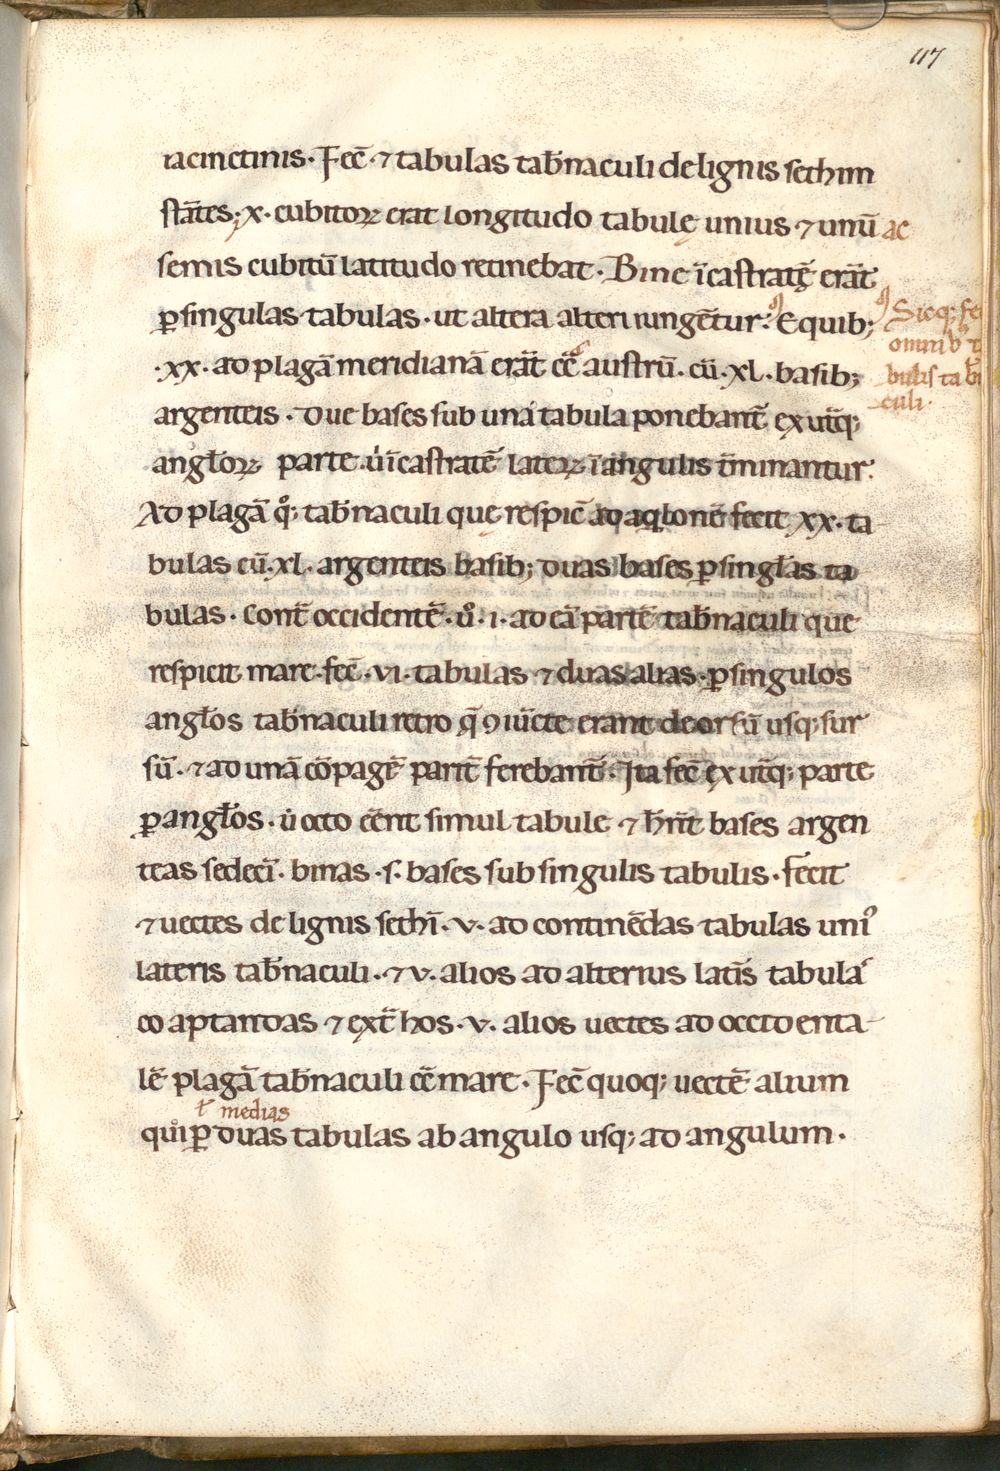 117
iacinctinis· Fec̄·⁊ tabulas tab̄naculi de lignis sethim
stāтes· x· cubitoꝝ erat longitudo tabulę unius ⁊ unū ac
semis cubitū latitudo retinebat· Binę īcastratę erāt
ꝑ singulas tabulas· ut altera alteri iungēтur· E quib;
Sicq; fe
omnib; t
bulis tab̄
culi·
·xx· ad plagā meridianā erāt cc̄ austrū· cū·xl· basib;
argenteis· Due bases sub una tabula ponebant̄ ex utq̄;
angłoꝝ parte· u̇ īcastrate᷒ lateꝝ ī angulis t̄minantur·
Ad plagā qͦ; tab̄naculi quę respic̄ ad aqlonē fecit xx· ta
bulas cū·xl· argenteis basib; duas bases ꝑ singłas ta
bulas· Cont̄ occidentē· uͦ·i· ad eā partē tab̄naculi que
respicit mare· fec̄·vi· tabulas ⁊ duas alias· ꝑ singulos
angłos tab̄naculi retro q̄ ꝯiūcte erant deorsū usq; sur
sū·⁊ ad unā cōpagē parit̄ ferebant̄· Ita fec̄ ex utq̄; parte
ꝑ angłos· u̇ octo eēnt simul tabule ⁊ h̄rnt bases argen
teas sedecī· binas·s· bases sub singulis tabulis· fecit
⁊ uectes de lignis sethī· v· ad continēdas tabulas uniꝰ
lateris tab̄naculi·⁊ v· alios ad alterius lat̄is tabula᷒
coaptandas ⁊ ext̄ hos· v· alios uectes ad occidenta
lē plagā tab̄naculi cc̄ mare· Fec̄ quoq; uectē alium
ł medias
qui ꝑ duas tabulas ab angulo usq; ad angulum·